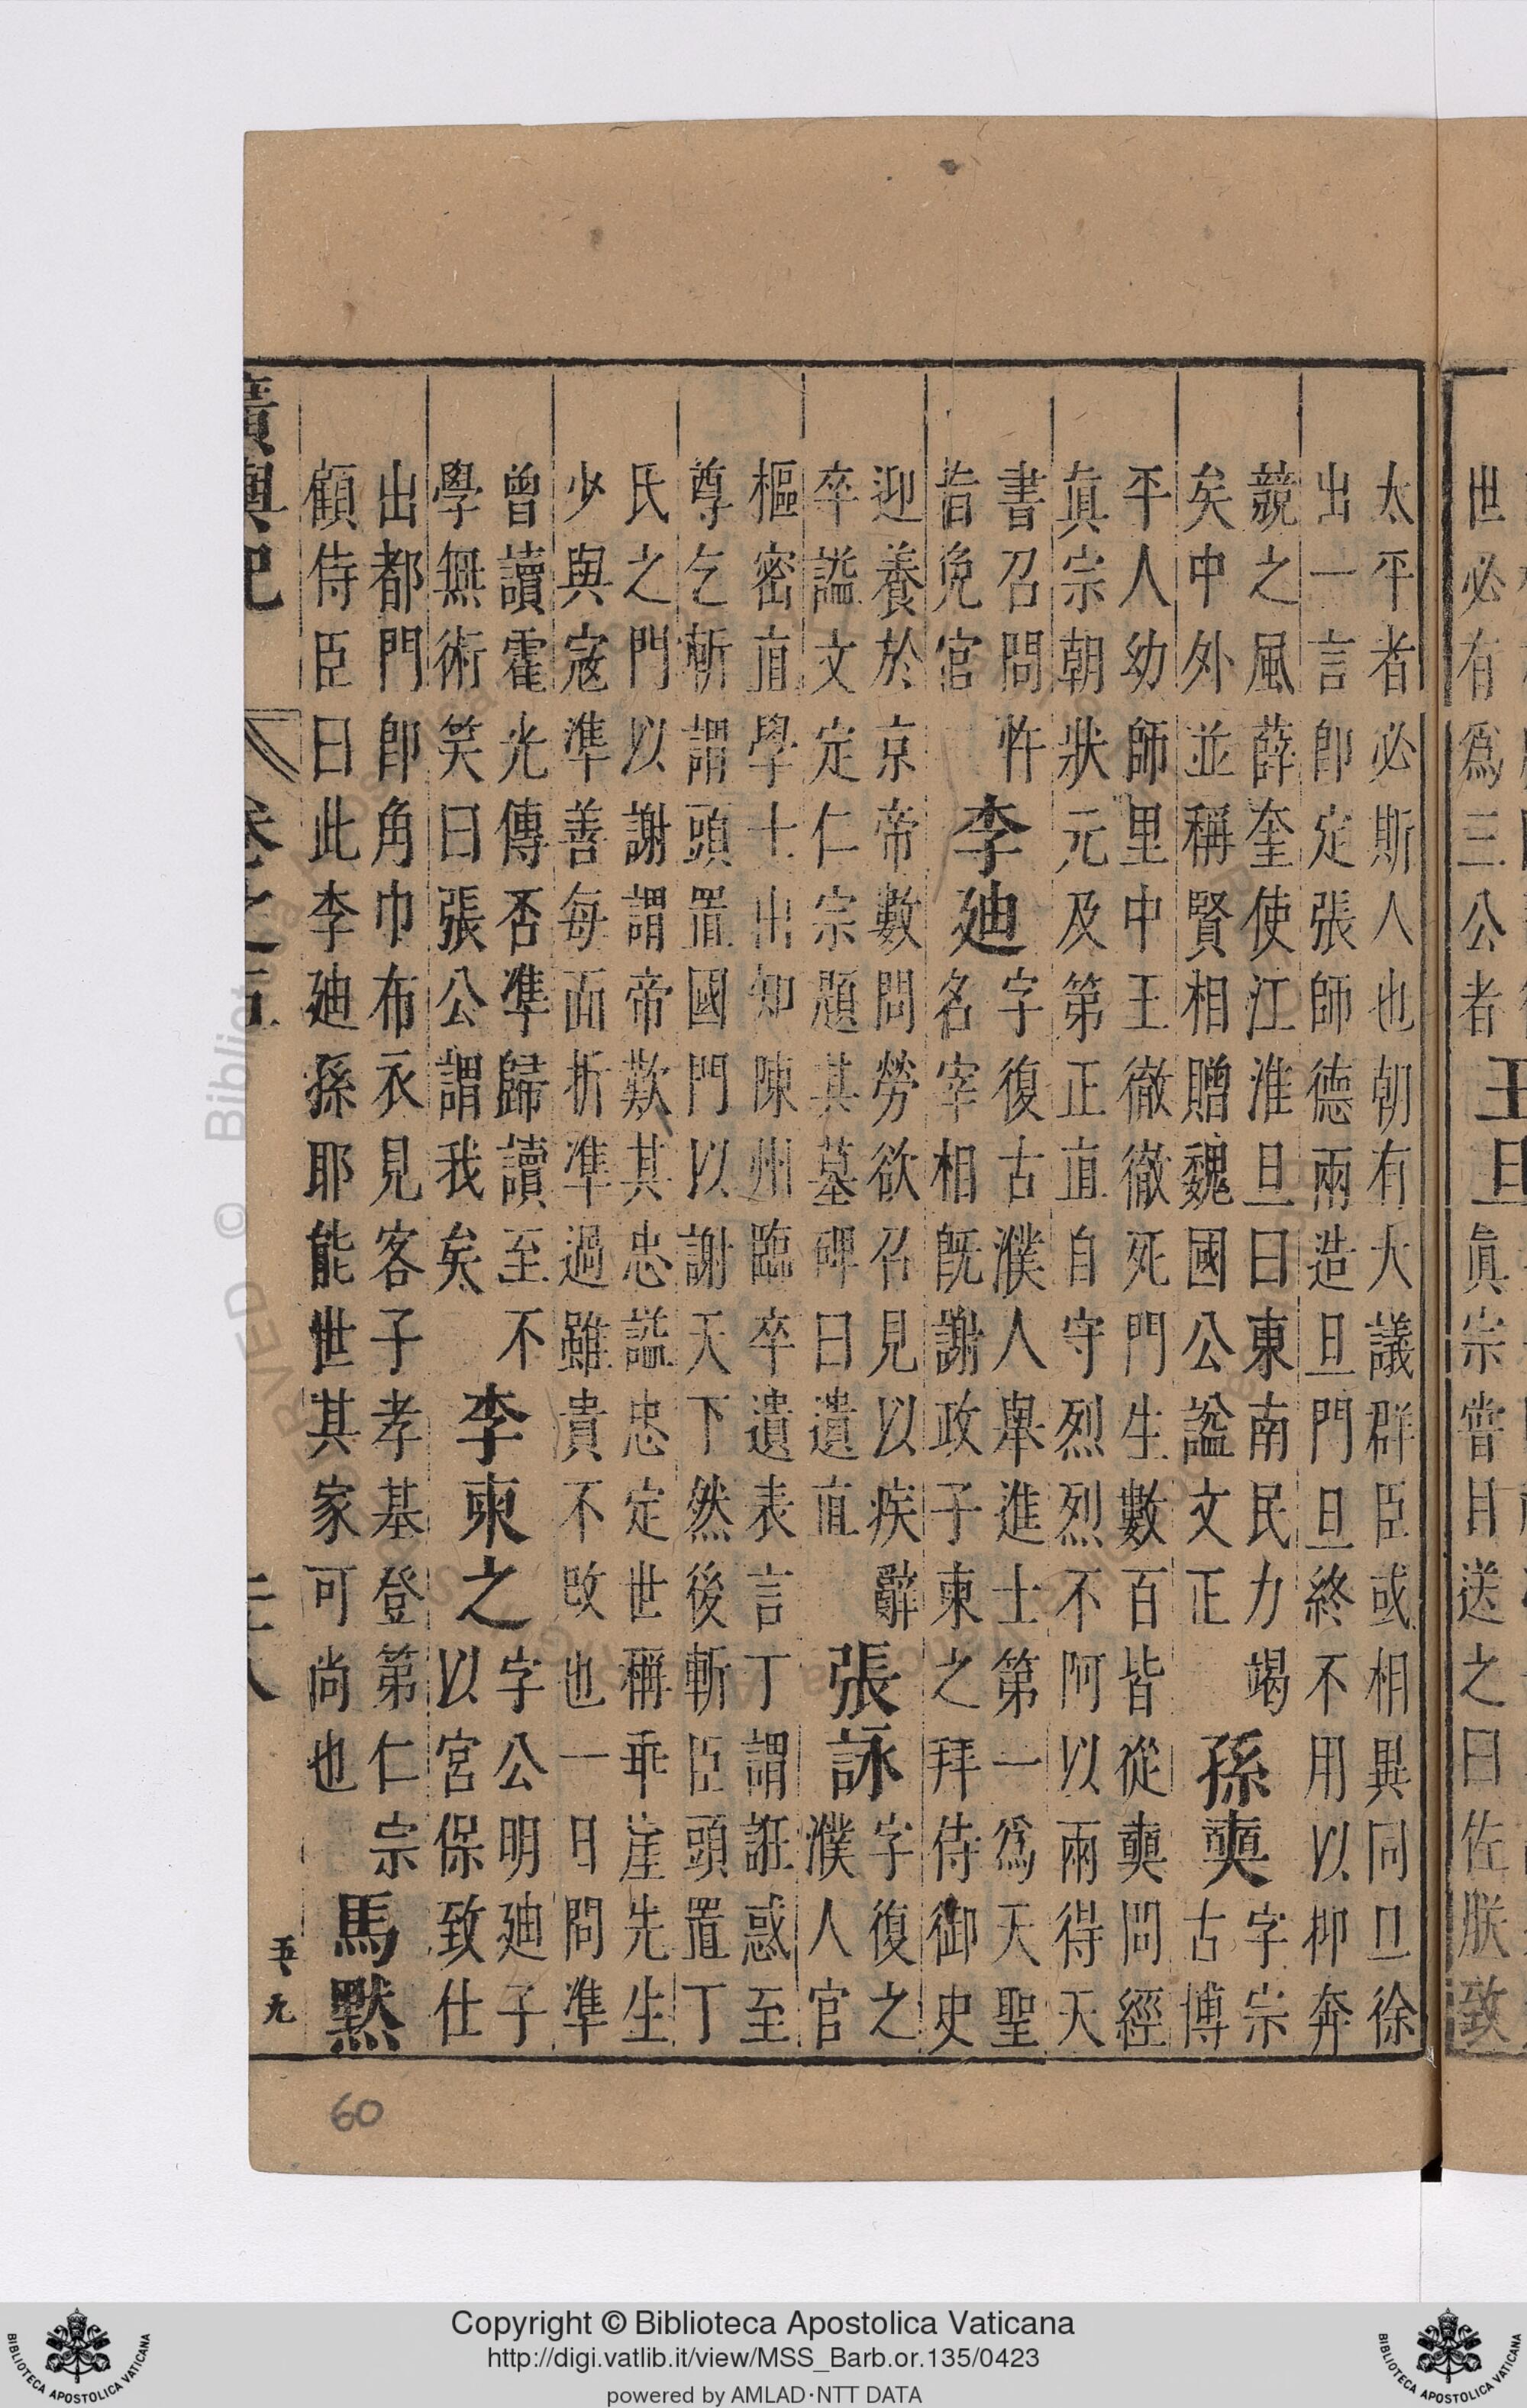 世必有爲三公者
王旦
眞宗嘗目送之曰佐朕致
太平者必斯人也朝有大議群臣或相異同旦徐
出一言卽定張師德兩造旦門旦終不用以抑奔
競之風薛奎使江淮旦曰東南民力竭
矣中外並稱賢相贈魏國公謚文正
孫奭
字宗
古博
平人幼師里中王徹徹死門生數百皆從奭問經
眞宗朝狀元及第正直自守烈烈不阿以兩得天
書召問忤
旨免官
李廸
字復古濮人舉進士第一爲天聖
名宰相旣謝政子柬之拜侍御史
迎養於京帝數問勞欲召見以疾辭
卒諡文定仁宗題其墓碑曰遺直
張詠
字復之
濮人官
樞密直學士出知陳州臨卒遺表言丁謂誑惑至
尊乞斬謂頭置國門以謝天下然後斬臣頭置丁
氏之門以謝謂帝歎其忠諡忠定世稱乖崖先生
少與寇準善每面折準過雖貴不改也一日問準
曾讀霍光傳否準歸讀至不
學無術笑曰張公謂我矣
李柬之
字公明廸子
以宮保致仕
出都門卽角巾布衣見客子孝基登第仁宗
顧侍臣曰此李廸孫耶能世其家可尚也
馬默
廣輿記
卷之五
五元
60
Copyright © Biblioteca Apostolica Vaticana
http://digi.vatlib.it/view/MSS_Barb.or.135/0423
powered by AMLAD·NTT DATA
BIBLIOTECA APOSTOLICA VATICANA
BIBLIOTECA APOSTOLICA VATICANA